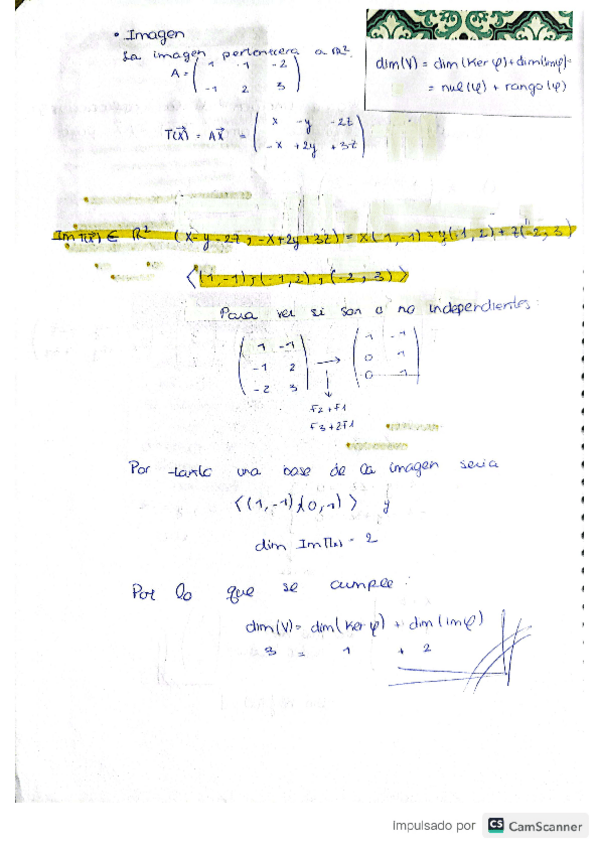 • Imagen
La imagen pertenecera a R².
A = ( 1 -1 -2
-1 2 3 )
T(x⃗) = Ax⃗ = ( x -y -2z
-x +2y +3z )
dim(V) = dim(Ker φ) + dim(Imφ) =
= nul(φ) + rango(φ)
Im T(x⃗) ∈ R² (x-y-2z, -x+2y+3z) = x(1,-1)+y(-1,2)+z(-2,3)
<(1,-1),(-1,2),(-2,3)>
Para ver si son o no independientes:
( 1 -1
-1 2
-2 3 ) → ( 1 -1
0 1
0 1 )
F2+F1
F3+2F1
Por tanto una base de la imagen seria
<(1,-1),(0,1)> y
dim ImT(x) = 2
Por lo que se cumple:
dim(V) = dim(Ker φ) + dim(imφ)
3 = 1 + 2
Impulsado por CS CamScanner